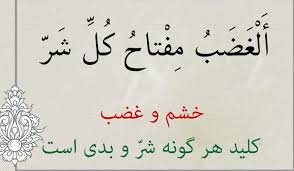 أَلْغَضَبُ مِفْتاحُ كُلِّ شَرّ
خشم و غضب
کلید هر گونه شرّ و بدی است